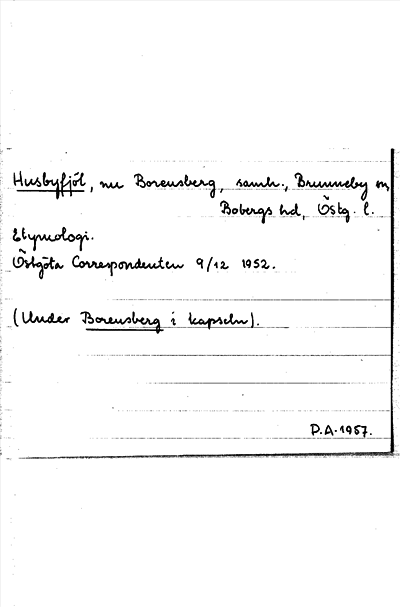 Husbyfjöl, nu Borensberg, samh., Brunneby sn,
Bobergs hd, Östg. l.
Etymologi.
Östgöta Correspondenten 9/12 1952.
(Under Borensberg i kapseln).
P.A. 1957.